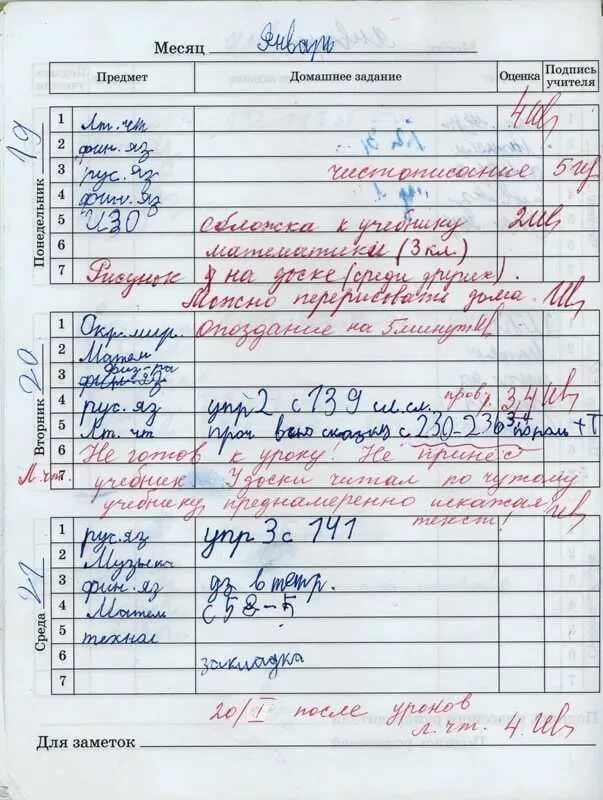 Месяц Январь
Предмет Домашнее задание Оценка Подпись учителя
Понедельник 19
1 Лт. чт 4
2 фин. яз
3 рус. яз чистописание 5
4 фин. яз
5 ИЗО обложка к учебнику 2
6 математики (3 кл.)
7 Рисунок на доске (среди других).
Можно перерисовать дома.
Вторник 20
1 Окр. мир. опоздание на 5 минут
2 Матем
физ-ра
3 фин. яз
4 рус. яз упр 2 с 139 сл. сл. пров. р. 3,4
5 Лт. чт проч всю сказку с 230-236 + Т
6 Не готов к уроку! Не принёс
Л. чт. 7 учебник У доски читал по чужому
учебнику, преднамеренно искажал
текст!
Среда 21
1 рус. яз упр 3 с 141
2 Музыка
3 фин. яз дз в тетр.
4 Матем с 58-5
5 технол
6 закладка
7
20/I после уроков
л. чт. 4.
Для заметок